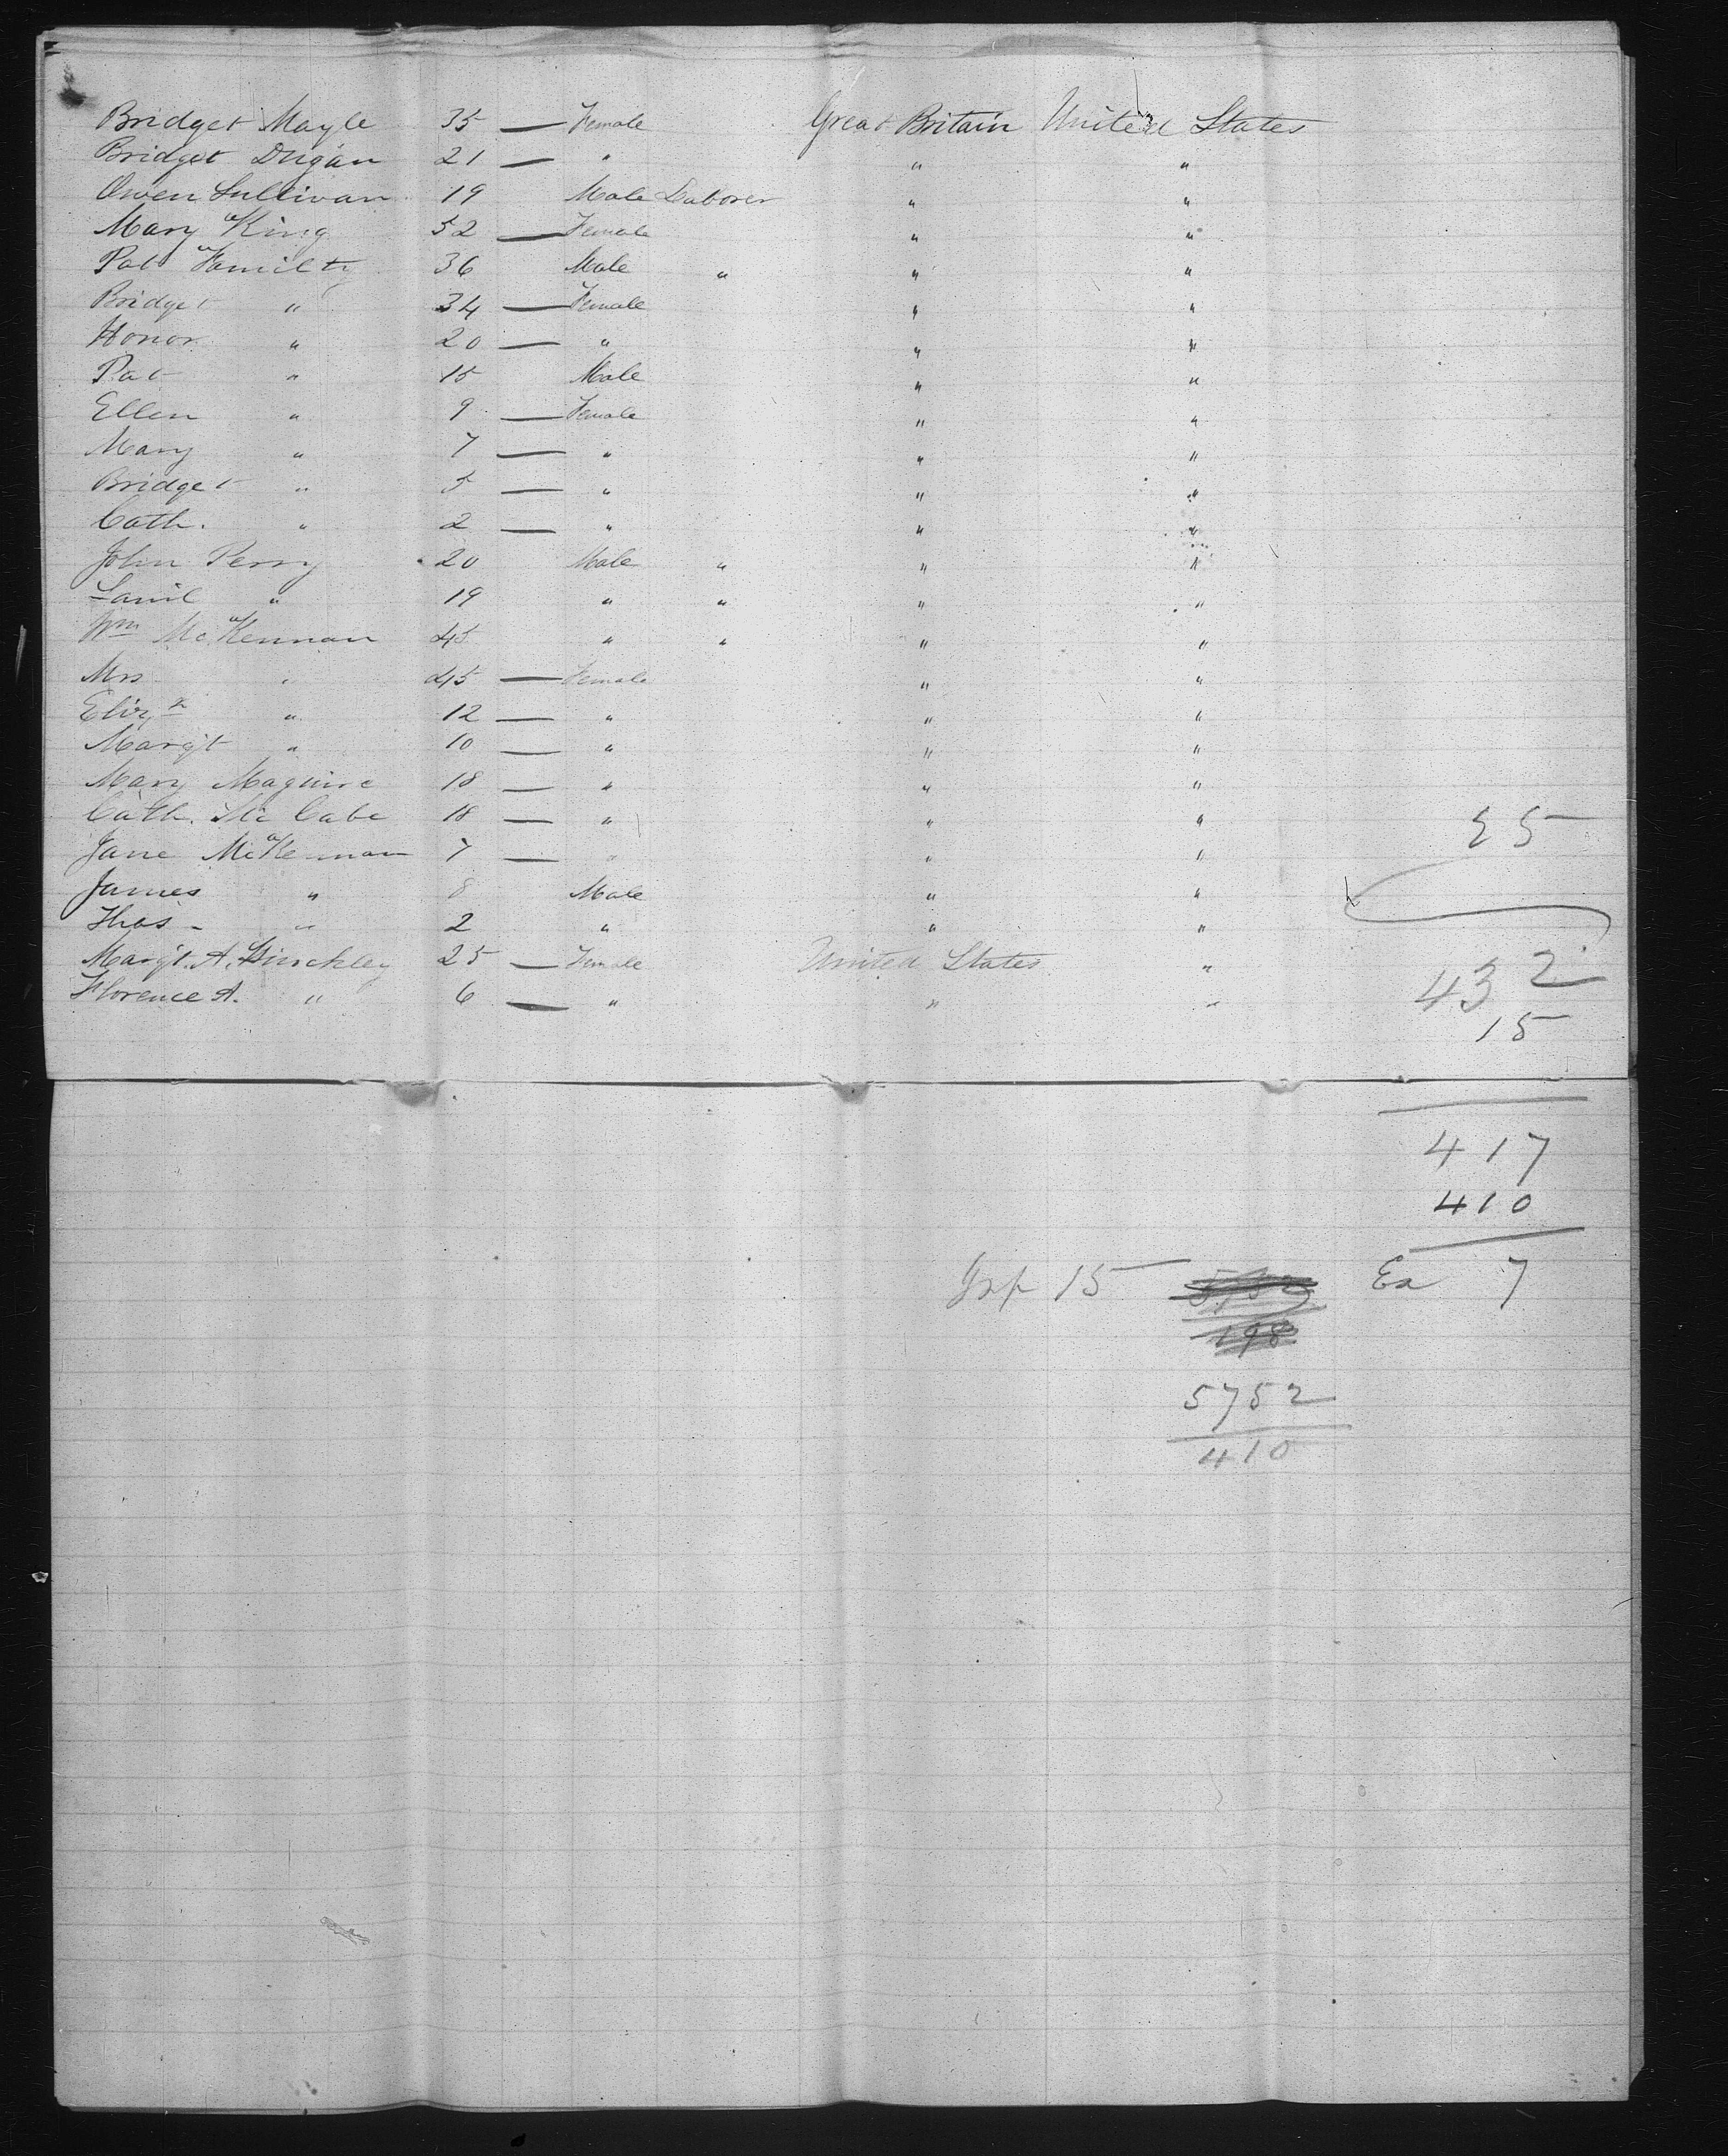 Bridget Mayle 35 — Female Great Britain United States
Bridget Dugan 21 — " " "
Owen Sullivan 19 Male Laborer " "
Mary King 52 — Female " "
Pat Familty 36 Male " " "
Bridget " 34 — Female " "
Honor " 20 — " " "
Pat " 15 Male " "
Ellen " 9 — Female " "
Mary " 7 — " " "
Bridget " 5 — " " "
Cath. " 2 — " " "
John Perry 20 Male " " "
" 19 " " " "
Wm McKennan 45 " " " "
Mrs " 45 — Female " "
Eliza " 12 — " " "
Margt " 10 — " " "
Mary Maguire 18 — " " "
Cath. Mc Cabe 18 — " " "
Jane McKennan 7 — " " "
James " 8 Male " "
Thos - " 2 " " "
Margt. A. Hinckley 25 — Female United States "
Florence A. " 6 — " " "
25
432
15
417
410
Inf 15 Ex 7
198
5752
410